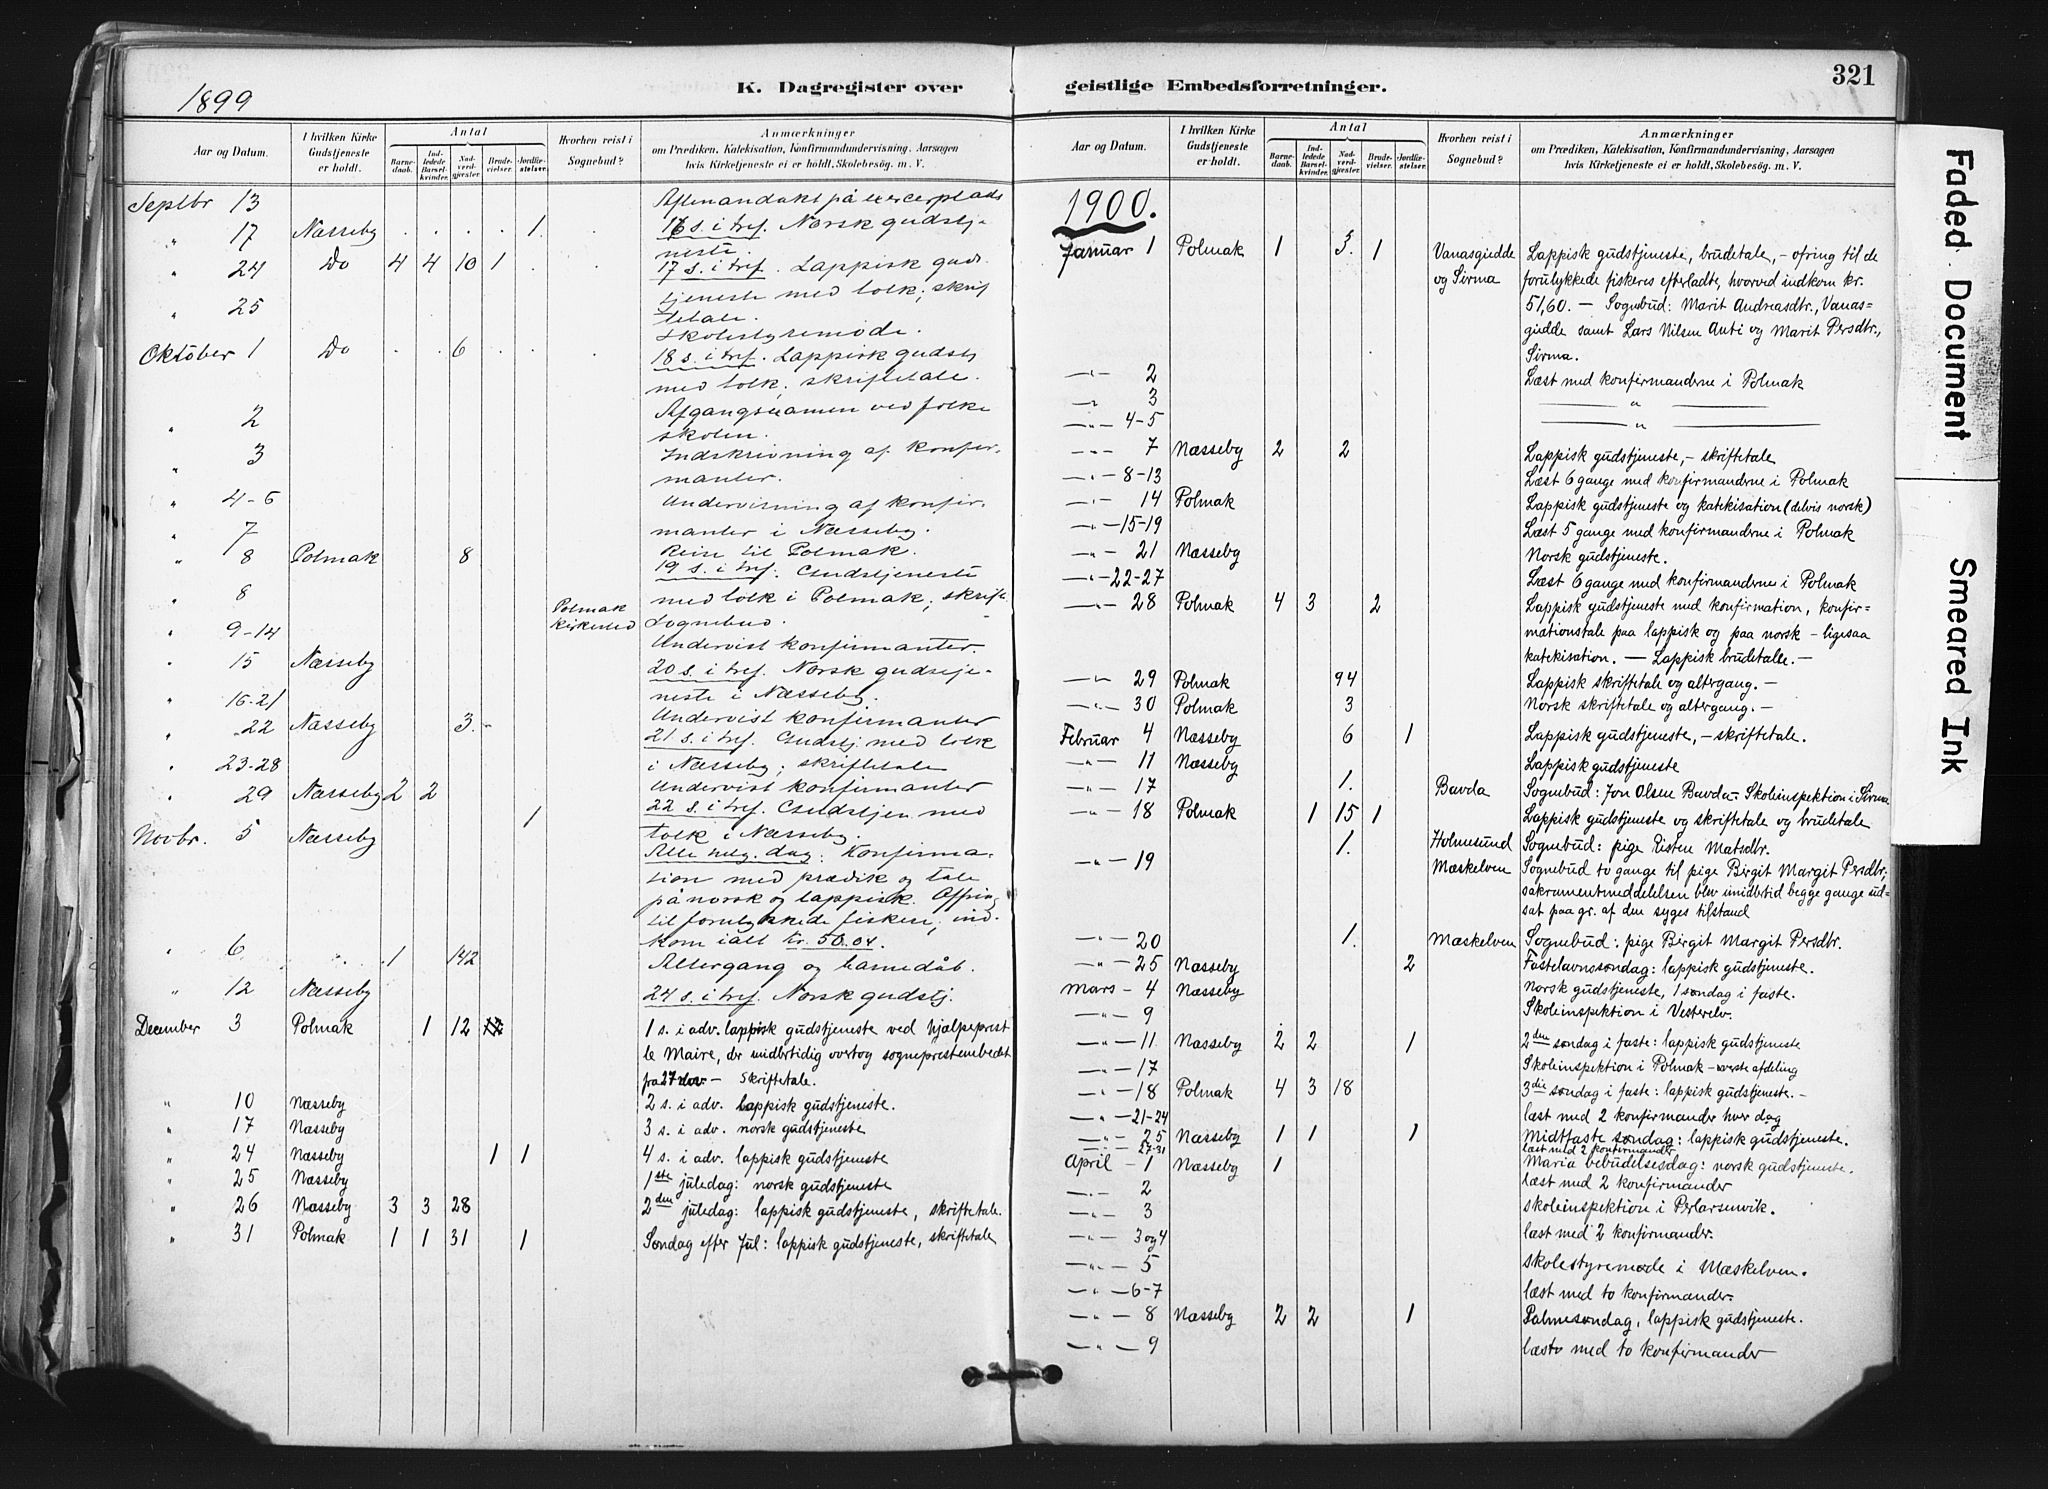 321
1899
K. Dagregister over
geistlige Embedsforretninger.
Aar og Datum.
I hvilken Kirke Gudstjeneste er holdt.
Antal
Barne-daab.
Ind-ledede Barsel-kvinder.
Nad-verd-gjester.
Brude-vielser.
Jordfæ-stelser.
Hvorhen reist i Sognebud?
Anmærkninger
om Prædiken, Katekisation, Konfirmandundervisning, Aarsagen
hvis Kirketjeneste ei er holdt, Skolebesøg. m. V.
Septbr 13 Aftenandakt på exercerplads
" 17 Næsseby . . . . 1. . 16 s. i tref. Norsk gudstj-
neste.
" 24 Do 4 4 10 1 . . 17 s. i tref. Lappisk guds-
tjeneste med tolk; skrif
tetale.
" 25 Skolestyremøde.
Oktober 1 Do . . 6 . . . 18 s. i tref. Lappisk gudstj
med tolk; skriftetale.
" 2 Afgangsexamen ved folke
skolen.
" 3 Indskrivning af konfir-
manter.
" 4-6 Undervisning af konfir-
manter i Næsseby.
" 7 Reise til Polmak.
" 8 Polmak 8 19 s. i tref. Gudstjeneste
med tolk i Polmak; skrift.
" 8 Polmak Kirkested Sognebud.
" 9-14 Undervist konfirmanter.
" 15 Næsseby 20 s. i tref. Norsk gudstje-
neste i Næsseby.
" 16-21 Undervist konfirmanter
" 22 Næsseby 3. - 21 s. i tref. Gudstj. med tolk
i Næsseby; skriftetale
" 23-28 Undervist konfirmanter
" 29 Næsseby 2 2 22 s. i tref. Gudstjen med
tolk i Næsseby.
Novbr. 5 Næsseby 1 Alle helg. dag: Konfirma-
tion med prædik og tale
på norsk og lappisk. Offring
til forulykkede fiskere; ind-
kom ialt kr. 50.04.
" 6 " 1 142 Altergang og barnedåb.
" 12 Næsseby 24 s. i tref. Norsk gudstj.
December 3 Polmak 1 12 1 s. i adv. lappisk gudstjeneste ved hjælpeprest
le Maire, der imidlertidig overtog sogneprestembedet
fra 27 nov. - Skriftetale.
" 10 Næsseby 2 s. i adv. lappisk gudstjeneste.
" 17 Næsseby 3 s. i adv. norsk gudstjeneste
" 24 Næsseby 1 1 4 s. i adv. lappisk gudstjeneste
" 25 Næsseby 1ste juledag: norsk gudstjeneste
" 26 Næsseby 3 3 28 2den juledag: lappisk gudstjeneste, skriftetale.
" 31 Polmak 1 1 31 1 Søndag efter Jul: lappisk gudstjeneste, skriftetale
Aar og Datum.
I hvilken Kirke Gudstjeneste er holdt.
Antal
Barne-daab.
Ind-ledede Barsel-kvinder.
Nad-verd-gjester.
Brude-vielser.
Jordfæ-stelser.
Hvorhen reist i Sognebud?
Anmærkninger
om Prædiken, Katekisation, Konfirmandundervisning, Aarsagen
hvis Kirketjeneste ei er holdt, Skolebesøg. m. V.
1900.
Januar 1 Polmak 1 3. 1 Vanasgiedde og Sirma Lappisk gudstjeneste, brudetale, - ofring til de
forulykkede fiskeres efterladte, hvorved indkom kr.
51,60. - Sognebud: Marit Andreasdtr., Vanas-
giedde samt Lars Nilsen Anti og Marit Persdtr.,
Sirma.
—"— 2 Læst med konfirmanderne i Polmak
—"— 3 —— " ——
—"— 4-5 —— " ——
—"— 7 Næsseby 2 2 Lappisk gudstjeneste, - skriftetale
—"— 8-13 Læst 6 gange med konfirmanderne i Polmak
—"— 14 Polmak Lappisk gudstjeneste og katekisation (delvis norsk)
—"— 15-19 Læst 5 gange med konfirmanderne i Polmak
—"— 21 Næsseby Norsk gudstjeneste.
—"— 22-27 Læst 6 gange med konfirmanderne i Polmak
—"— 28 Polmak 4 3 2 Lappisk gudstjeneste med konfirmation, konfir=
mationstale paa lappisk og paa norsk - ligesaa
katekisation. — Lappisk brudetale. -
—"— 29 Polmak 94 Lappisk skriftetale og altergang. -
—"— 30 Polmak 3 Norsk skriftetale og altergang. -
Februar 4 Næsseby 6 1 Lappisk gudstjeneste, - skriftetale.
—"— 11 Næsseby Lappisk gudstjeneste
—"— 17 1. Bavda Sognebud: Jon Olsen Bavda - Skoleinspektion i Sirma
—"— 18 Polmak 1 15 1 Lappisk gudstjeneste og skriftetale og brudetale
1. Holmesund Sognebud: pige Listen Matsdtr.
—"— 19 Mæskelven Sognebud to gange til pige Birgit Margit Persdtr;
sakramentmeddelelsen blev imidlertid begge gange ud-
sat paa gr. af den syges tilstand
—"— 20 1. Mæskelven Sognebud: pige Birgit Margit Persdtr.
—"— 25 Næsseby 2 Fastelavnssøndag: lappisk gudstjeneste.
Mars - 4 Næsseby Norsk gudstjeneste, 1 søndag i faste.
—"— 9 Skoleinspektion i Vesterelv.
—"— 11 Næsseby 2 2 1 2den søndag i faste: lappisk gudstjeneste
—"— 17 Skoleinspektion i Polmak - øverste afdeling
—"— 18 Polmak 4 3 18 3die søndag i faste: lappisk gudstjeneste. -
—"— 21-24 læst med 2 konfirmander hver dag
—"— 25 Næsseby 1 1 1 Midtfaste søndag: lappisk gudstjeneste.
—"— 27-31 læst med 2 konfirmander
April - 1 Næsseby 1 Maria bebudelsesdag: norsk gudstjeneste.
—"— 2 læst med 2 konfirmander
—"— 3 skoleinspektion i Perlarsenvik.
—"— 3 og 4 læst med 2 konfirmander.
—"— 5 skolestyremøde i Mæskelven.
—"— 6-7 læst med to konfirmander.
—"— 8 Næsseby 2 2 1 Palmesøndag, lappisk gudstjeneste.
—"— 9 læst med to konfirmander
Faded Document
Smeared Ink